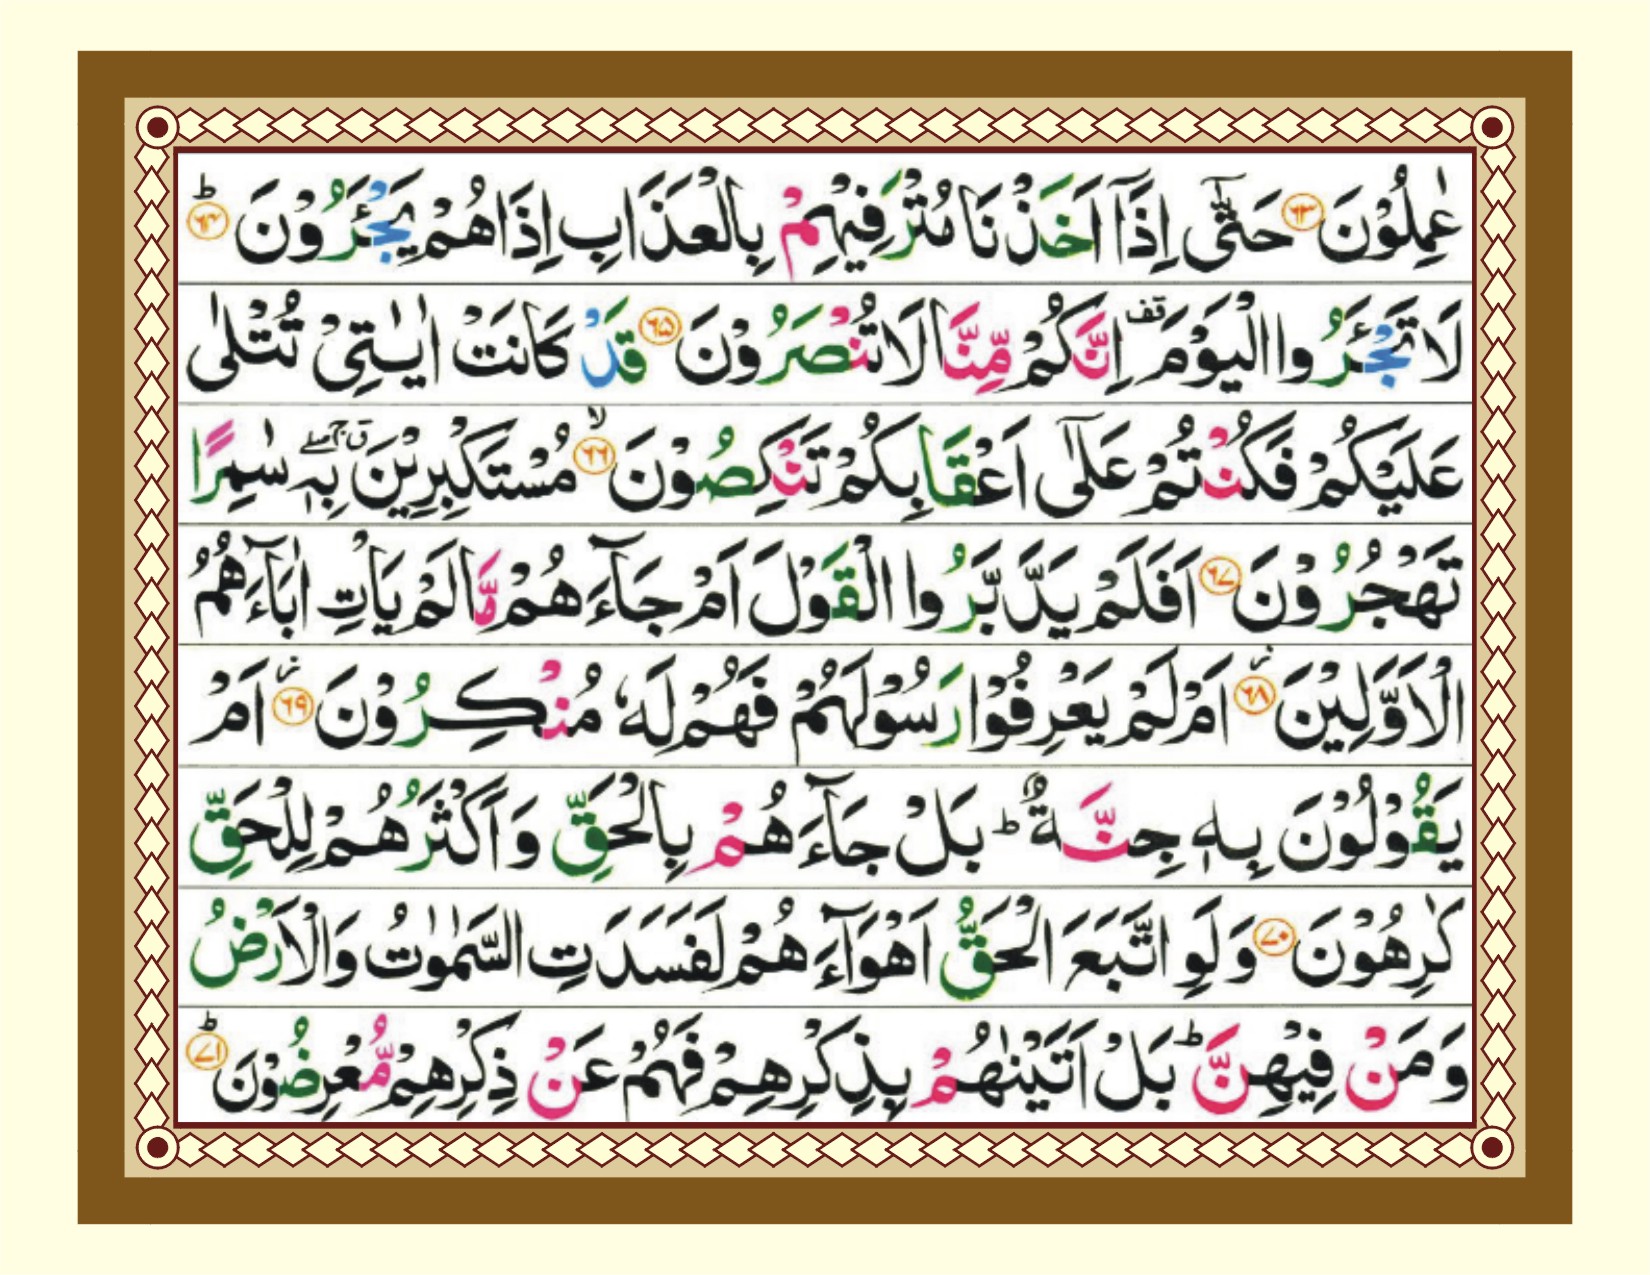 عٰمِلُوْنَ ﴿۶۳﴾ حَتّٰۤی اِذَاۤ اَخَذْنَا مُتْرَفِیْهِمْ بِالْعَذَابِ اِذَا هُمْ یَجْـَٔرُوْنَ ؕ﴿۶۴﴾
لَا تَجْـَٔرُوا الْیَوْمَ ۫ اِنَّكُمْ مِّنَّا لَا تُنْصَرُوْنَ ﴿۶۵﴾ قَدْ كَانَتْ اٰیٰتِیْ تُتْلٰی
عَلَیْكُمْ فَكُنْتُمْ عَلٰۤی اَعْقَابِكُمْ تَنْكِصُوْنَ ۙ﴿۶۶﴾ مُسْتَكْبِرِیْنَ ۖۗ بِهٖ سٰمِرًا
تَهْجُرُوْنَ ﴿۶۷﴾ اَفَلَمْ یَدَّبَّرُوا الْقَوْلَ اَمْ جَآءَهُمْ مَّا لَمْ یَاْتِ اٰبَآءَهُمُ
الْاَوَّلِیْنَ ؗ﴿۶۸﴾ اَمْ لَمْ یَعْرِفُوْا رَسُوْلَهُمْ فَهُمْ لَهٗ مُنْكِرُوْنَ ؗ﴿۶۹﴾ اَمْ
یَقُوْلُوْنَ بِهٖ جِنَّةٌ ؕ بَلْ جَآءَهُمْ بِالْحَقِّ وَاَكْثَرُهُمْ لِلْحَقِّ
كٰرِهُوْنَ ﴿۷۰﴾ وَلَوِ اتَّبَعَ الْحَقُّ اَهْوَآءَهُمْ لَفَسَدَتِ السَّمٰوٰتُ وَالْاَرْضُ
وَمَنْ فِیْهِنَّ ؕ بَلْ اَتَیْنٰهُمْ بِذِكْرِهِمْ فَهُمْ عَنْ ذِكْرِهِمْ مُّعْرِضُوْنَ ؕ﴿۷۱﴾